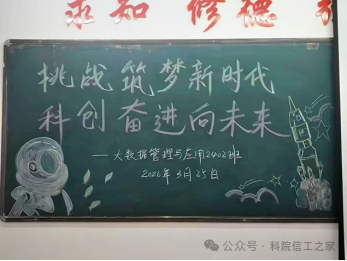 求知 修德
挑战筑梦新时代
科创奋进向未来
——大数据管理与应用2402班
2026年3月25日
公众号·科院信工之家